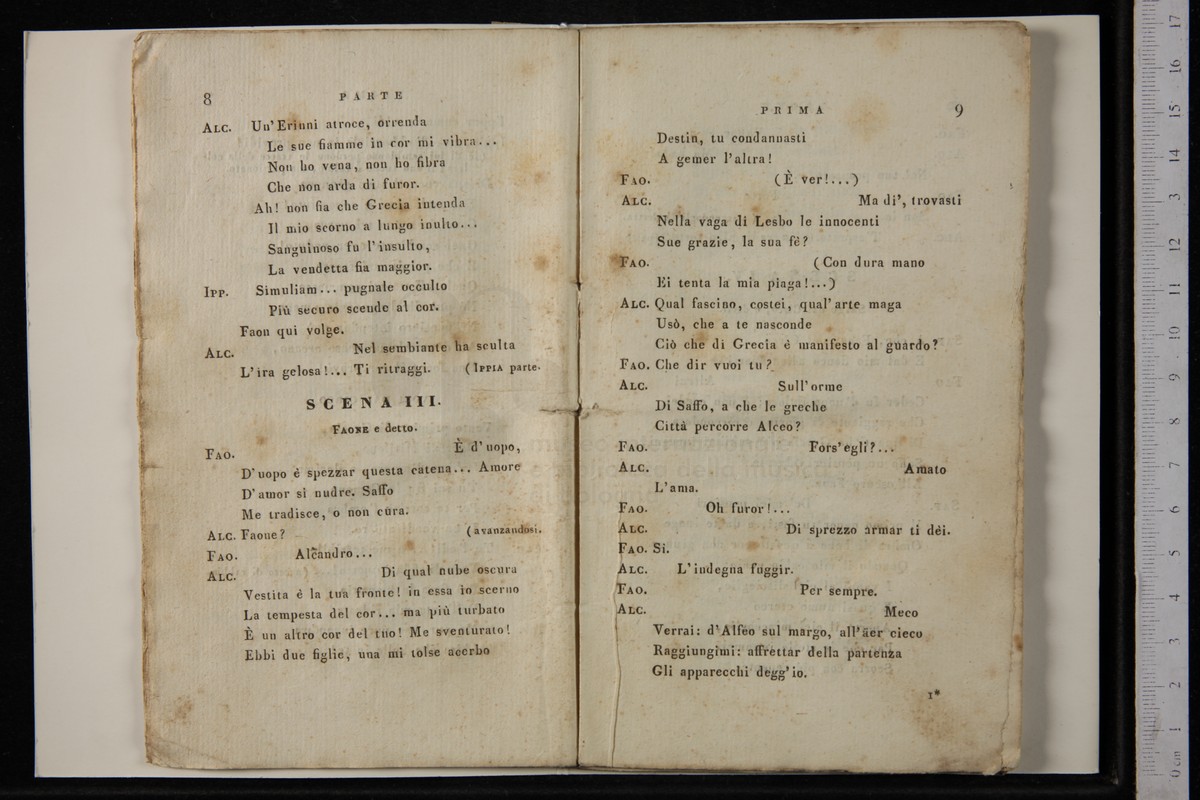 8 PARTE
ALC. Un'Erinni atroce, orrenda
Le sue fiamme in cor mi vibra...
Non ho vena, non ho fibra
Che non arda di furor.
Ah! non fia che Grecia intenda
Il mio scorno a lungo inulto...
Sanguinoso fu l'insulto,
La vendetta fia maggior.
IPP. Simuliam... pugnale occulto
Più securo scende al cor.
Faon qui volge.
ALC. Nel sembiante ha sculta
L'ira gelosa!... Ti ritraggi. (IPPIA parte.
SCENA III.
FAONE e detto.
FAO. È d'uopo,
D'uopo è spezzar questa catena... Amore
D'amor si nudre. Saffo
Me tradisce, o non cura.
ALC. Faone? (avanzandosi.
FAO. Alcandro...
ALC. Di qual nube oscura
Vestita è la tua fronte! in essa io scerno
La tempesta del cor... ma più turbato
È un altro cor del tuo! Me sventurato!
Ebbi due figlie, una mi tolse acerbo
PRIMA 9
Destin, tu condannasti
A gemer l'altra!
FAO. (È ver!...)
ALC. Ma di', trovasti
Nella vaga di Lesbo le innocenti
Sue grazie, la sua fè?
FAO. (Con dura mano
Ei tenta la mia piaga!...)
ALC. Qual fascino, costei, qual'arte maga
Usò, che a te nasconde
Ciò che di Grecia è manifesto al guardo?
FAO. Che dir vuoi tu?
ALC. Sull'orme
Di Saffo, a che le greche
Città percorre Alceo?
FAO. Fors'egli?...
ALC. Amato
L'ama.
FAO. Oh furor!...
ALC. Di sprezzo armar ti dèi.
FAO. Si.
ALC. L'indegna fuggir.
FAO. Per sempre.
ALC. Meco
Verrai: d'Alfeo sul margo, all'äer cieco
Raggiungimi: affrettar della partenza
Gli apparecchi degg'io.
1*